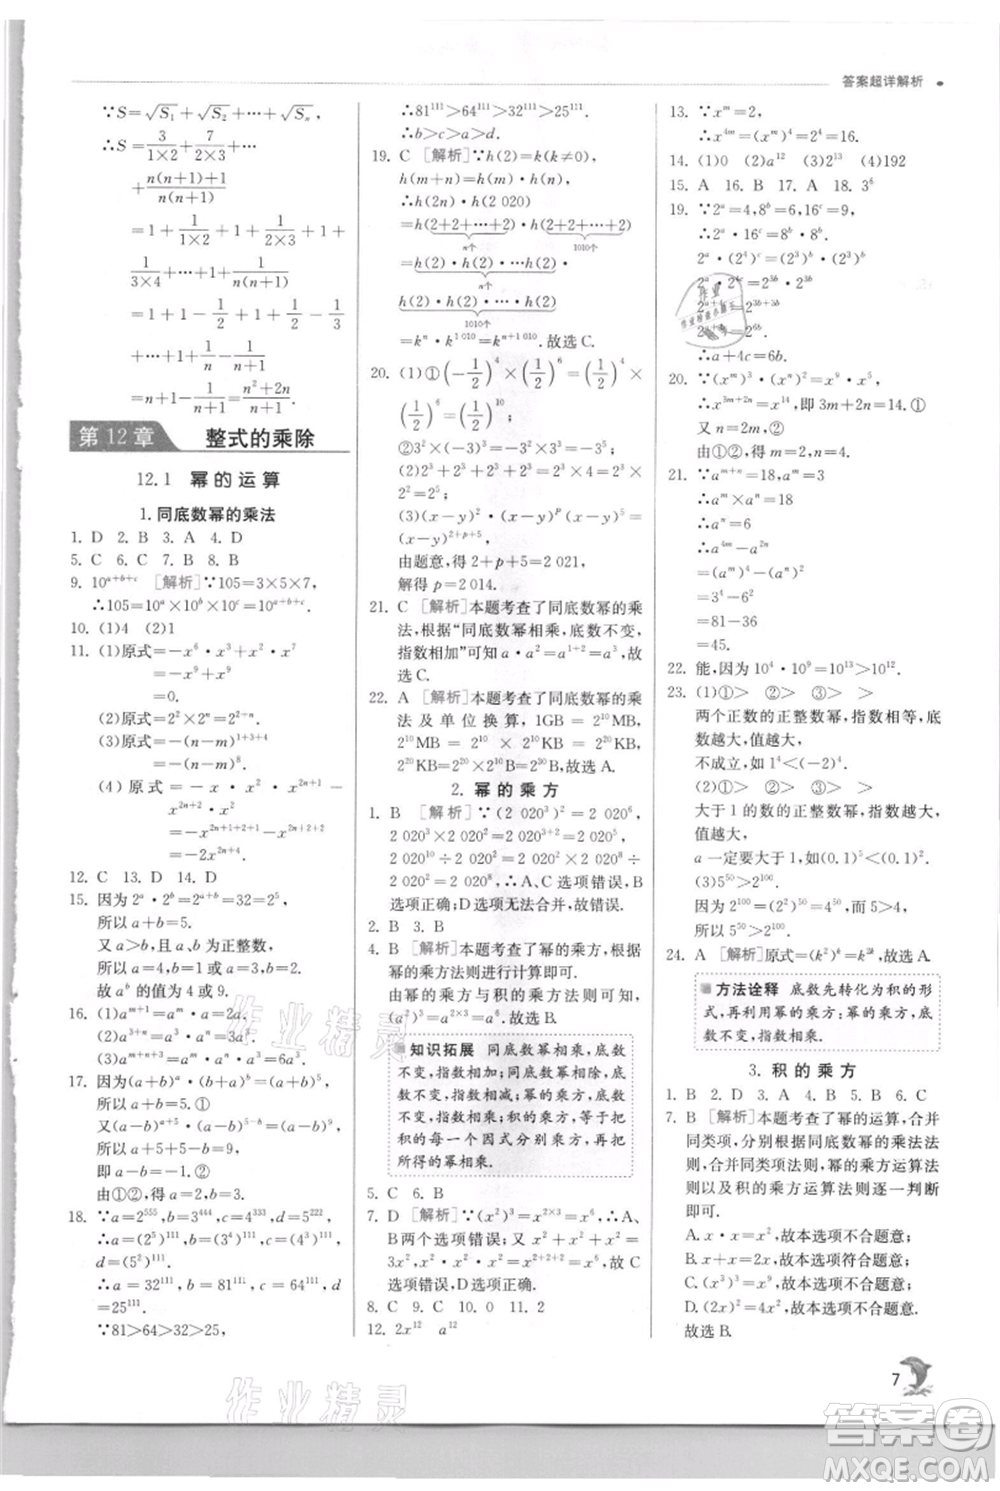 答案超详解析
∵S=√S₁+√S₂+⋯+√Sₙ,
∴S=3/(1×2)+7/(2×3)+⋯
+(n(n+1)+1)/(n(n+1))
=1+1/(1×2)+1+1/(2×3)+1+
1/(3×4)+⋯+1+1/(n(n+1))
第12章 整式的乘除
12.1 幂的运算
1.同底数幂的乘法
1. D 2. B 3. A 4. D
5. C 6. C 7. B 8. B
9. 10^(a+b+c) [解析]∵105=3×5×7,
∴105=10^a×10^b×10^c=10^(a+b+c).
10. (1)4 (2)1
11. (1)原式=-x⁶·x³+x²·x⁷
=-x⁹+x⁹
=0.
(3)原式=-(n-m)^(1+3+4)
=-(n-m)⁸.
(4)原式=-x·x^(2n+1)-
x^(2n+2)·x²
=-x^(2n+1+2+1)-x^(2n+2+2)
=-2x^(2n+4).
12. C 13. D 14. D
15. 因为2^a·2^b=2^(a+b)=32=2⁵,
所以a+b=5.
又a,b均为正整数,
所以a=1,b=4或a=2,b=3.
故a^b的值为4或9.
16. (1)a^(m+1)=a^m·a=2a.
(2)a^(3+n)=a³·a^n=3a³.
17. ∵(a-b)^a·(a-b)^b=(a-b)⁵,
∴a+b=5.①
又(a+b)^(a+4)·(a+b)^(5-b)=(a+b)⁷,
∴a+4+5-b=7.
即a-b=-2.②
由①②,得a=1.5,b=3.5.
18. ∵a=2⁵⁵⁵,b=3⁴⁴⁴,c=4³³³,d=5²²²,
∴a=(2⁵)¹¹¹,b=(3⁴)¹¹¹,c=(4³)¹¹¹,
d=(5²)¹¹¹.
∴a=32¹¹¹,b=81¹¹¹,c=64¹¹¹,d=
25¹¹¹.
∵81>64>32>25,
∴81¹¹¹>64¹¹¹>32¹¹¹>25¹¹¹.
∴b>c>a>d.
19. C [解析]∵h(2)=k(k≠0),
h(m+n)=h(m)·h(n),
∴h(2n)·h(2 020)
=h(2+2+⋯+2)·h(2+2+⋯+2)
n个 1010个
=h(2)·h(2)·⋯·h(2)·
n个
h(2)·h(2)·⋯·h(2)
1010个
=kⁿ·k¹⁰¹⁰=k^(n+1010).故选C.
20. (1)①(-1/2)⁴×(-1/2)⁶=(1/2)⁴×
(1/2)⁶=(1/2)¹⁰;
由题意,得2+p+5=2 021,
解得p=2 014.
21. C [解析]本题考查了同底数幂的乘
法,根据“同底数幂相乘,底数不变,
指数相加”可知a·a²=a^(1+2)=a³,故
选C.
22. A [解析]本题考查了同底数幂的乘
法及单位换算,1GB=2¹⁰MB=
2¹⁰×2¹⁰KB=2¹⁰×2¹⁰×2¹⁰B=2³⁰B.故选A.
2. 幂的乘方
1. B [解析]∵(2 020³)²=2 020⁶,
2 020³×2 020²=2 020³⁺²=2 020⁵,
∴A、C选项错误,B
选项正确;D选项无法合并,故选B.
2. B 3. B
4. B [解析]本题考查了幂的乘方,根据
幂的乘方法则进行计算即可.
由幂的乘方与积的乘方法则可知,
(a²)³=a^(2×3)=a⁶.故选B.
知识拓展 同底数幂相乘,底数
不变,指数相加;同底数幂相除,底
数不变,指数相减;幂的乘方,底数
不变,指数相乘;积的乘方,等于把
积的每一个因式分别乘方,再把
所得的幂相乘.
5. C 6. B
7. D [解析]∵(x²)³=x^(2×3)=x⁶,∴A、
B两个选项错误;又x²+x²+x²=
3x²,x²·x²·x²=x^(2+2+2)=x⁶,∴C
选项错误,D选项正确.
8. C 9. C 10. 0 11. 2
12. 2x¹² a¹²
13. ∵x^m=2,
∴x^(4m)=(x^m)⁴=2⁴=16.
14. (1)0 (2)a¹² (3)2¹³ (4)192
15. A 16. B 17. A 18. 3⁶
19. ∵2^a=4,8^b=6,16^c=9,
∴2^a·16^c=8^b·8^b.
2^a·(2⁴)^c=(2³)^b·(2³)^b.
2^a·2^(4c)=2^(3b)·2^(3b).
2^(a+4c)=2^(3b+3b),
2^(a+4c)=2^(6b).
∴a+4c=6b.
20. ∵(x^m)³·(xⁿ)²=x¹⁴,
∴x^(3m+2n)=x¹⁴,即3m+2n=14.①
又n=2m,②
由①②,得m=2,n=4.
21. ∵a^(m+n)=18,a^m=3,
∴a^m×a^n=18
∴a^n=6.
∴a^(4m)-a^(2n)
=(a^m)⁴-(a^n)²
=3⁴-6²
=81-36
=45.
22. 能,因为10⁴·10⁹=10¹³>10¹².
23. (1)①> ②> ③> ④>
两个正数的正整数幂,指数相等,底
数越大,值越大,
如1⁴>(0.1)⁴,1⁴<(-2)⁴.
(2)①> ②> ③> ④>
大于1的数的正整数幂,指数越大,
值越大,
a一定要大于1,如(0.1)³<(0.1)².
(3)5⁵⁰>2¹⁰⁰.
因为2¹⁰⁰=(2²)⁵⁰=4⁵⁰,而5>4,
所以5⁵⁰>2¹⁰⁰.
24. A [解析]
方法诠释 底数先转化为积的形
式,再利用幂的乘方:幂的乘方,底
数不变,指数相乘.
3. 积的乘方
1. B 2. D 3. A 4. A 5. B 6. C
7. B [解析]本题考查了幂的运算,合并
同类项,分别根据同底数幂的乘法法
则,合并同类项法则,幂的乘方运算法
则以及积的乘方运算法则逐一判断
即可.
B. x+x=2x,故本选项符合题意;
C. (x³)³=x⁹,故本选项不合题意;
D. (2x)²=4x²,故本选项不合题意.
故选B.
7
作业精灵
作业精灵
答案圈
MXQE.COM